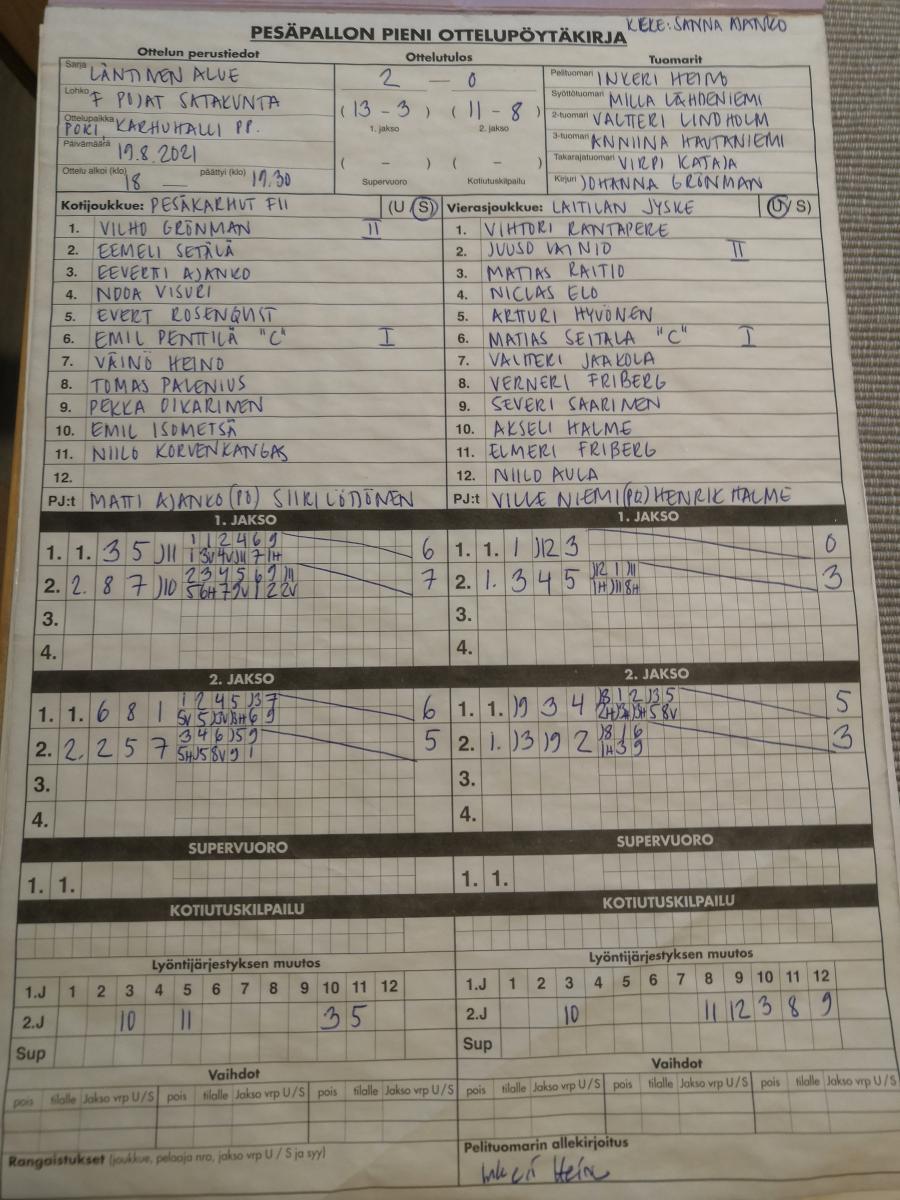 KKKE: SANNA AJANKO
PESÄPALLON PIENI OTTELUPÖYTÄKIRJA
Ottelun perustiedot Ottelutulos Tuomarit
Sarja LÄNTINEN ALUE
Lohko F POJAT SATAKUNTA
Ottelupaikka PORI, KARHUHALLI PP.
Päivämäärä 19.8.2021
Ottelu alkoi (klo) 18 — päättyi (klo) 19.30
2 — 0
(13 - 3) (11 - 8)
1. jakso 2. jakso
( - ) ( - )
Supervuoro Kotiutuskilpailu
Pelituomari INKERI HEINO
Syöttötuomari MILLA LÄHDENIEMI
2-tuomari VALTTERI LINDHOLM
3-tuomari ANNIINA HAUTANIEMI
Takarajatuomari VIRPI KATAJA
Kirjuri JOHANNA GRÖNMAN
Kotijoukkue: PESÄKARHUT FII (U / S)
1. VILHO GRÖNMAN II
2. EEMELI SETÄLÄ
3. EEVERTI AJANKO
4. NOOA VISURI
5. EVERT ROSENQVIST
6. EMIL PENTTILÄ "C" I
7. VÄINÖ HEINO
8. TOMAS PALENIUS
9. PEKKA OIKARINEN
10. EMIL ISOMETSÄ
11. NIILO KORVENKANGAS
12.
PJ:t MATTI AJANKO (PÖ) SIIRI LÖTJÖNEN
Vierasjoukkue: LAITILAN JYSKE (U / S)
1. VIHTORI RANTAPERE
2. JUUSO VAINIO II
3. MATIAS RAITIO
4. NICLAS ELO
5. ARTTURI HYVÖNEN
6. MATIAS SEITALA "C" I
7. VALTTERI JAAKOLA
8. VERNERI FRIBERG
9. SEVERI SAARINEN
10. AKSELI HALME
11. ELMERI FRIBERG
12. NIILO AULA
PJ:t VILLE NIEMI (PÖ) HENRIK HALME
1. JAKSO 1. JAKSO
1. 1. 3 5 )11 1 1 2 4 6 9 6
2. 2. 8 7 )10 2 3 4 5 6 9 )11 7
3.
4.
1. 1. 1 )12 3 0
2. 1. 3 4 5 )12 1 )11 3
3.
4.
2. JAKSO 2. JAKSO
1. 1. 6 8 1 1 2 4 5 )3 7 6
2. 2. 2 5 7 3 4 6 )5 9 5
3.
4.
1. 1. )9 3 4 )8 1 2 )3 5 5
2. 1. )3 )9 2 )8 1 6 3
3.
4.
SUPERVUORO SUPERVUORO
1. 1. 1. 1.
KOTIUTUSKILPAILU KOTIUTUSKILPAILU
Lyöntijärjestyksen muutos Lyöntijärjestyksen muutos
1.J 1 2 3 4 5 6 7 8 9 10 11 12
2.J 10 11 3 5
Sup
1.J 1 2 3 4 5 6 7 8 9 10 11 12
2.J 10 11 12 3 8 9
Sup
Vaihdot Vaihdot
pois tilalle Jakso vrp U / S pois tilalle Jakso vrp U / S pois tilalle
pois tilalle Jakso vrp U / S pois tilalle Jakso vrp U / S pois tilalle Jakso vrp U / S
Rangaistukset (joukkue, pelaaja nro, jakso vrp U / S ja syy)
Pelituomarin allekirjoitus
Inkeri Heino